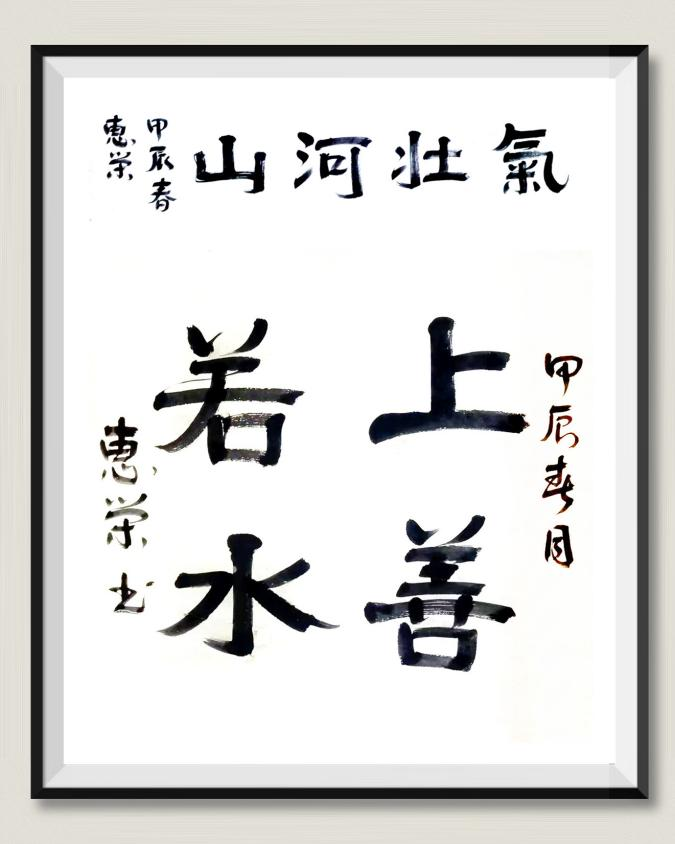 氣壯河山
甲辰春
惠荣
甲辰春月
上善
若水
惠荣书